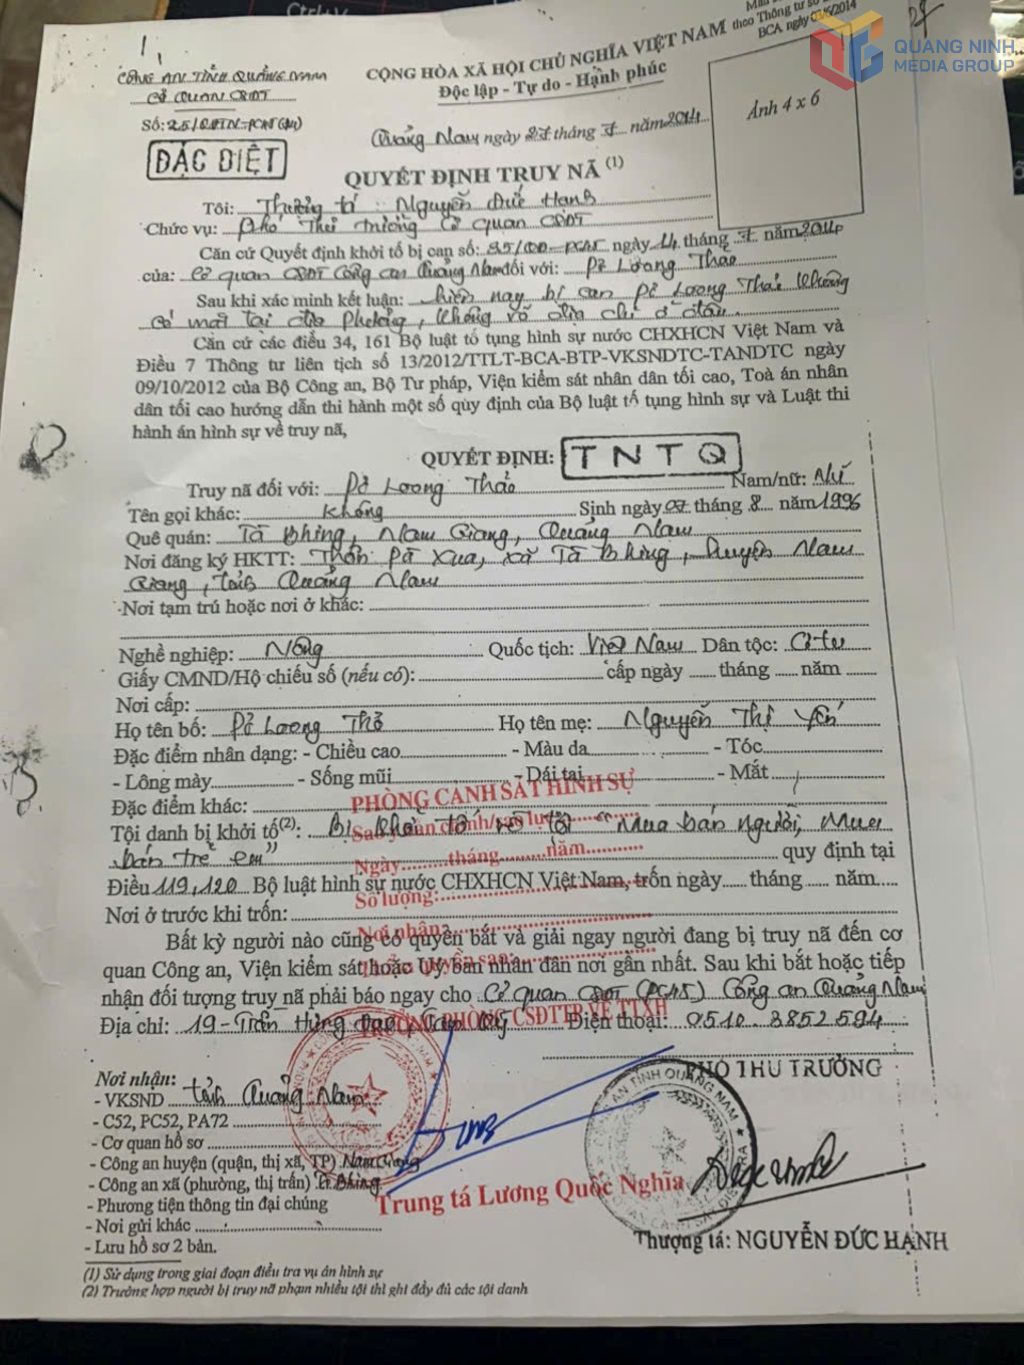 Ctrl
QUANG NINH
MEDIA GROUP
theo Thông tư số
BCA ngày
CÔNG AN TỈNH QUẢNG NAM
CƠ QUAN CSĐT
Số: 25/
ĐẶC BIỆT
CỘNG HÒA XÃ HỘI CHỦ NGHĨA VIỆT NAM
Độc lập - Tự do - Hạnh phúc
Ảnh 4 x 6
Quảng Nam ngày 27 tháng năm 2014
QUYẾT ĐỊNH TRUY NÃ (1)
Tôi: Thượng tá: Nguyễn Đức Hạnh
Chức vụ: Phó Thủ trưởng Cơ quan CSĐT
Căn cứ Quyết định khởi tố bị can số: ngày 14 tháng năm 2014
của: Cơ quan CSĐT Công an Quảng Nam đối với: Pơ Loong Thảo
Sau khi xác minh kết luận: hiện nay bị can Pơ Loong Thảo không
có mặt tại địa phương, không rõ địa chỉ ở đâu.
Căn cứ các điều 34, 161 Bộ luật tố tụng hình sự nước CHXHCN Việt Nam và
Điều 7 Thông tư liên tịch số 13/2012/TTLT-BCA-BTP-VKSNDTC-TANDTC ngày
09/10/2012 của Bộ Công an, Bộ Tư pháp, Viện kiểm sát nhân dân tối cao, Toà án nhân
dân tối cao hướng dẫn thi hành một số quy định của Bộ luật tố tụng hình sự và Luật thi
hành án hình sự về truy nã,
QUYẾT ĐỊNH: TNTQ
Truy nã đối với: Pơ Loong Thảo Nam/nữ: Nữ
Tên gọi khác: Không Sinh ngày 07 tháng 8 năm 1996
Quê quán: Tà Bhing, Nam Giang, Quảng Nam
Nơi đăng ký HKTT: Thôn Pà Xua, xã Tà Bhing, huyện Nam
Giang, tỉnh Quảng Nam
Nơi tạm trú hoặc nơi ở khác:
Nghề nghiệp: Nông Quốc tịch: Việt Nam Dân tộc: Cơ tu
Giấy CMND/Hộ chiếu số (nếu có): cấp ngày tháng năm
Nơi cấp:
Họ tên bố: Pơ Loong Thỏ Họ tên mẹ: Nguyễn Thị Yến
Đặc điểm nhân dạng: - Chiều cao - Màu da - Tóc
- Lông mày - Sống mũi - Dái tai - Mắt
PHÒNG CẢNH SÁT HÌNH SỰ
Đặc điểm khác:
Tội danh bị khởi tố(2): Bị khởi tố về tội "Mua bán người, mua
bán trẻ em" quy định tại
Ngày tháng năm
Điều 119, 120 Bộ luật hình sự nước CHXHCN Việt Nam, trốn ngày tháng năm
Số lượng:
Nơi ở trước khi trốn:
Nơi nhận
Bất kỳ người nào cũng có quyền bắt và giải ngay người đang bị truy nã đến cơ
quan Công an, Viện kiểm sát hoặc Uỷ ban nhân dân nơi gần nhất. Sau khi bắt hoặc tiếp
nhận đối tượng truy nã phải báo ngay cho Cơ quan CSĐT (PC45) Công an Quảng Nam
Địa chỉ: 19 - Trần Hưng Đạo, Tam Kỳ Điện thoại: 0510.3852594
PHÒNG CSĐTTP VỀ TTXH
PHÓ THỦ TRƯỞNG
Nơi nhận:
- VKSND tỉnh Quảng Nam
- C52, PC52, PA72
- Cơ quan hồ sơ
- Công an huyện (quận, thị xã, TP) Nam Giang
- Công an xã (phường, thị trấn) Tà Bhing
- Phương tiện thông tin đại chúng
- Nơi gửi khác
- Lưu hồ sơ 2 bản.
Trung tá Lương Quốc Nghĩa
Thượng tá: NGUYỄN ĐỨC HẠNH
(1) Sử dụng trong giai đoạn điều tra vụ án hình sự
(2) Trường hợp người bị truy nã phạm nhiều tội thì ghi đầy đủ các tội danh